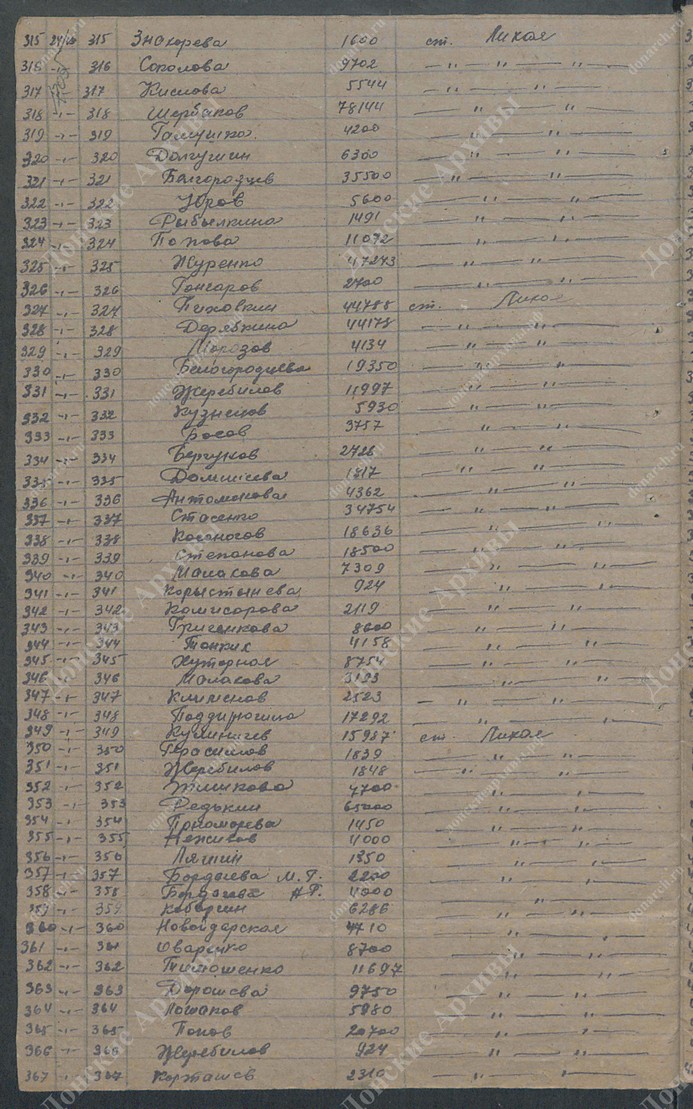 315 24/ 315 Знахорева 1600 ст. Лихая
316 -"- 316 Соколова 9702 — " — " — " —
317 317 Кислова 5544 — " — " — " —
318 -"- 318 Щербаков 78144 — " — " —
319 -"- 319 Галушко 4200 — " — " —
320 -"- 320 Долгушин 6300 — " — " —
321 -"- 321 Белгородцев 35500 — " — " —
322 -"- 322 5600 — " — " —
323 -"- 323 Рыбылкина 1491 — " — " —
324 -"- 324 Попова 11072 — " — " —
325 -"- 325 Журенко 47243 — " — " —
326 -"- 326 Гончаров 2700 — " — " —
327 -"- 327 Пиховкин 44785 ст. Лихая
328 -"- 328 Дерябкина 44178 — " — " —
329 -"- 329 Морозов 4134 — " — " —
330 -"- 330 Белогородцева 19350 — " — " —
331 -"- 331 Жеребилов 11997 — " — " —
332 -"- 332 Кузнецов 5930 — " — " —
333 -"- 333 3757 — " — " —
334 -"- 334 2728 — " — " —
335 -"- 335 1817 — " — " —
336 -"- 336 Антоманова 4362 — " — " —
337 -"- 337 Стасенко 34754 — " — " —
338 -"- 338 Косоносов 18636 — " — " —
339 -"- 339 Степанова 18500 — " — " —
340 -"- 340 Малахова 7309 — " — " —
341 -"- 341 Корыстынева 924 — " — " —
342 -"- 342 Комисарова 2119 — " — " —
343 -"- 343 8600 — " — " —
344 -"- 344 Тонких 4158 — " — " —
345 -"- 345 Хуторная 8754 — " — " —
346 -"- 346 Малахова 3193 — " — " —
347 -"- 347 Клименов 2523 — " — " —
348 -"- 348 17292 — " — " —
349 -"- 349 15987 ст. Лихая
350 -"- 350 Герасимов 1839 — " — " —
351 -"- 351 Жеребилов 1848 — " — " —
352 -"- 352 7700 — " — " —
353 -"- 353 Редькин 65000 — " — " —
354 -"- 354 Приморева 1450 — " — " —
355 -"- 355 4000 — " — " —
356 -"- 356 Ляшин 1350 — " — " —
357 -"- 357 Бордачева М. Г. 2200 — " — " —
358 -"- 358 Бордачева 4000 — " — " —
359 -"- 359 6286 — " — " —
360 -"- 360 Новойдарская — " — " —
361 -"- 361 8700 — " — " —
362 -"- 362 Тимошенко 11697 — " — " —
363 -"- 363 Дорошева 9750 — " — " —
364 -"- 364 Лошаков 5980 — " — " —
365 -"- 365 Попов 20700 — " — " —
366 -"- 366 Жеребилов 924 — " — " —
367 -"- 367 Корташев 2310 — " — " —
Донские Архивы
donarch.ru